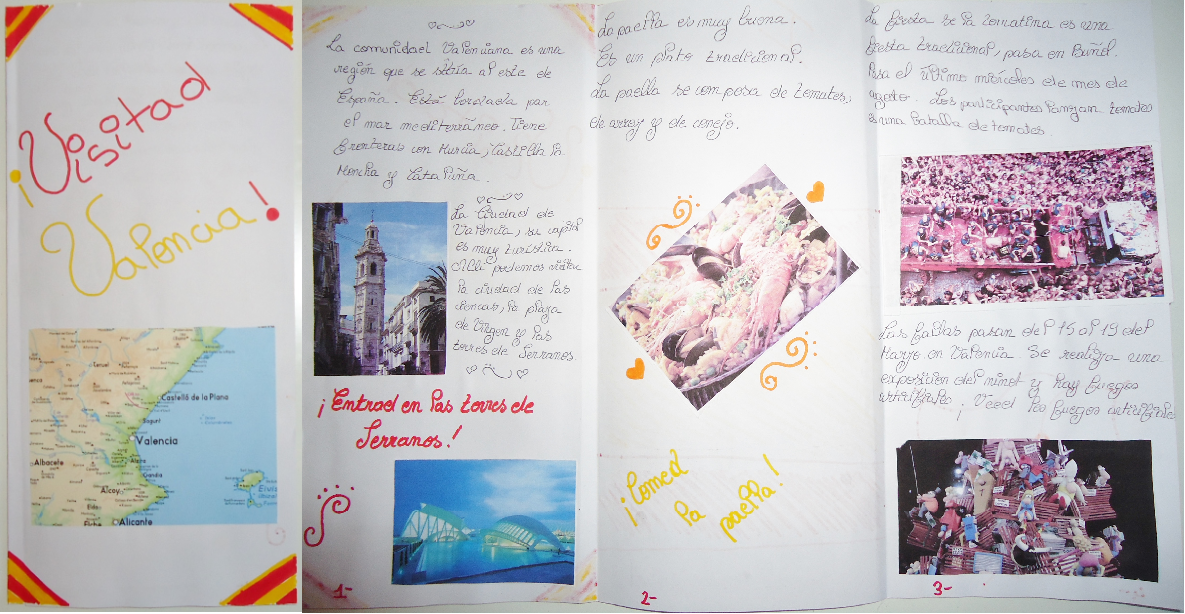 ¡Visitad
Valencia!
Castelló de la Plana
Sagunt
Valencia
Gandia
Albacete
Alcoy
Elda
Elche
Alicante
La comunidad Valenciana es una
región que se sitúa al este de
España. Está bordada par
el mar mediterráneo. Tiene
fronteras con Murcia, Castilla la
Mancha y Cataluña.
La Ciudad de
Valencia, su capital
es muy turística.
Allí podemos visitar
la ciudad de las
ciencas, la plaza
de Virgen y las
torres de Serranos.
¡Entrad en las torres de
Serranos!
1-
La paella es muy buena.
Es un plato tradicional.
La paella se composa de tomates,
de arroz y de conejo.
¡Comed
la
paella!
2-
La fiesta de la tomatina es una
fiesta tradicional, pasa en Buñol.
Pasa el último miércoles de mes de
agosto. Los participantes lanzan tomates
es una batalla de tomates.
Las fallas pasan del 15 al 19 del
Mayo en Valencia. Se realiza una
exposicion del ninot y hay fuegos
artificiales. ¡Veed los fuegos
3-